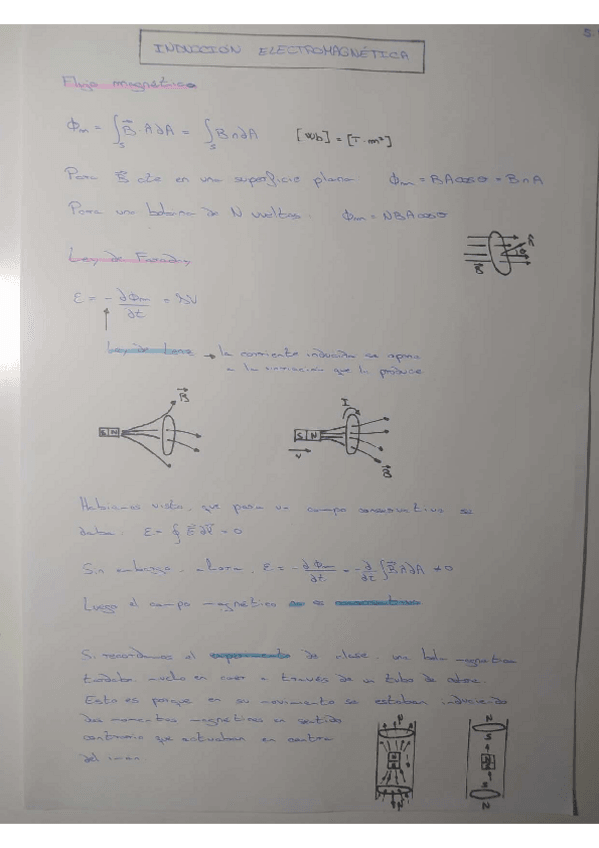 INDUCCIÓN ELECTROMAGNÉTICA
Flujo magnético
Φm = ∫s B⃗ · A dA = ∫s B n dA [Wb] = [T·m²]
Para B⃗ cte en una superficie plana. Φm = BA cos θ = B n A
Para una bobina de N vueltas. Φm = NBA cos θ
Ley de Faraday
ε = - ∂Φm/∂t = ΔV
Ley de Lenz → la corriente inducida se opone
a la variación que la produce
B⃗
S N
I
S N
v
B⃗
Habíamos visto, que para un campo conservativo se
daba. ε = ∮ E⃗ dr⃗ = 0
Sin embargo, ahora, ε = - ∂Φm/∂t = - ∂/∂t ∫ B⃗ n dA ≠ 0
Luego el campo magnético no es conservativo
Si recordamos el experimento de clase, una bola magnética
tardaba mucho en caer a través de un tubo de cobre.
Esto es porque en su movimiento se estaban induciendo
dos momentos magnéticos en sentido
contrario que actuaban en contra
del imán.